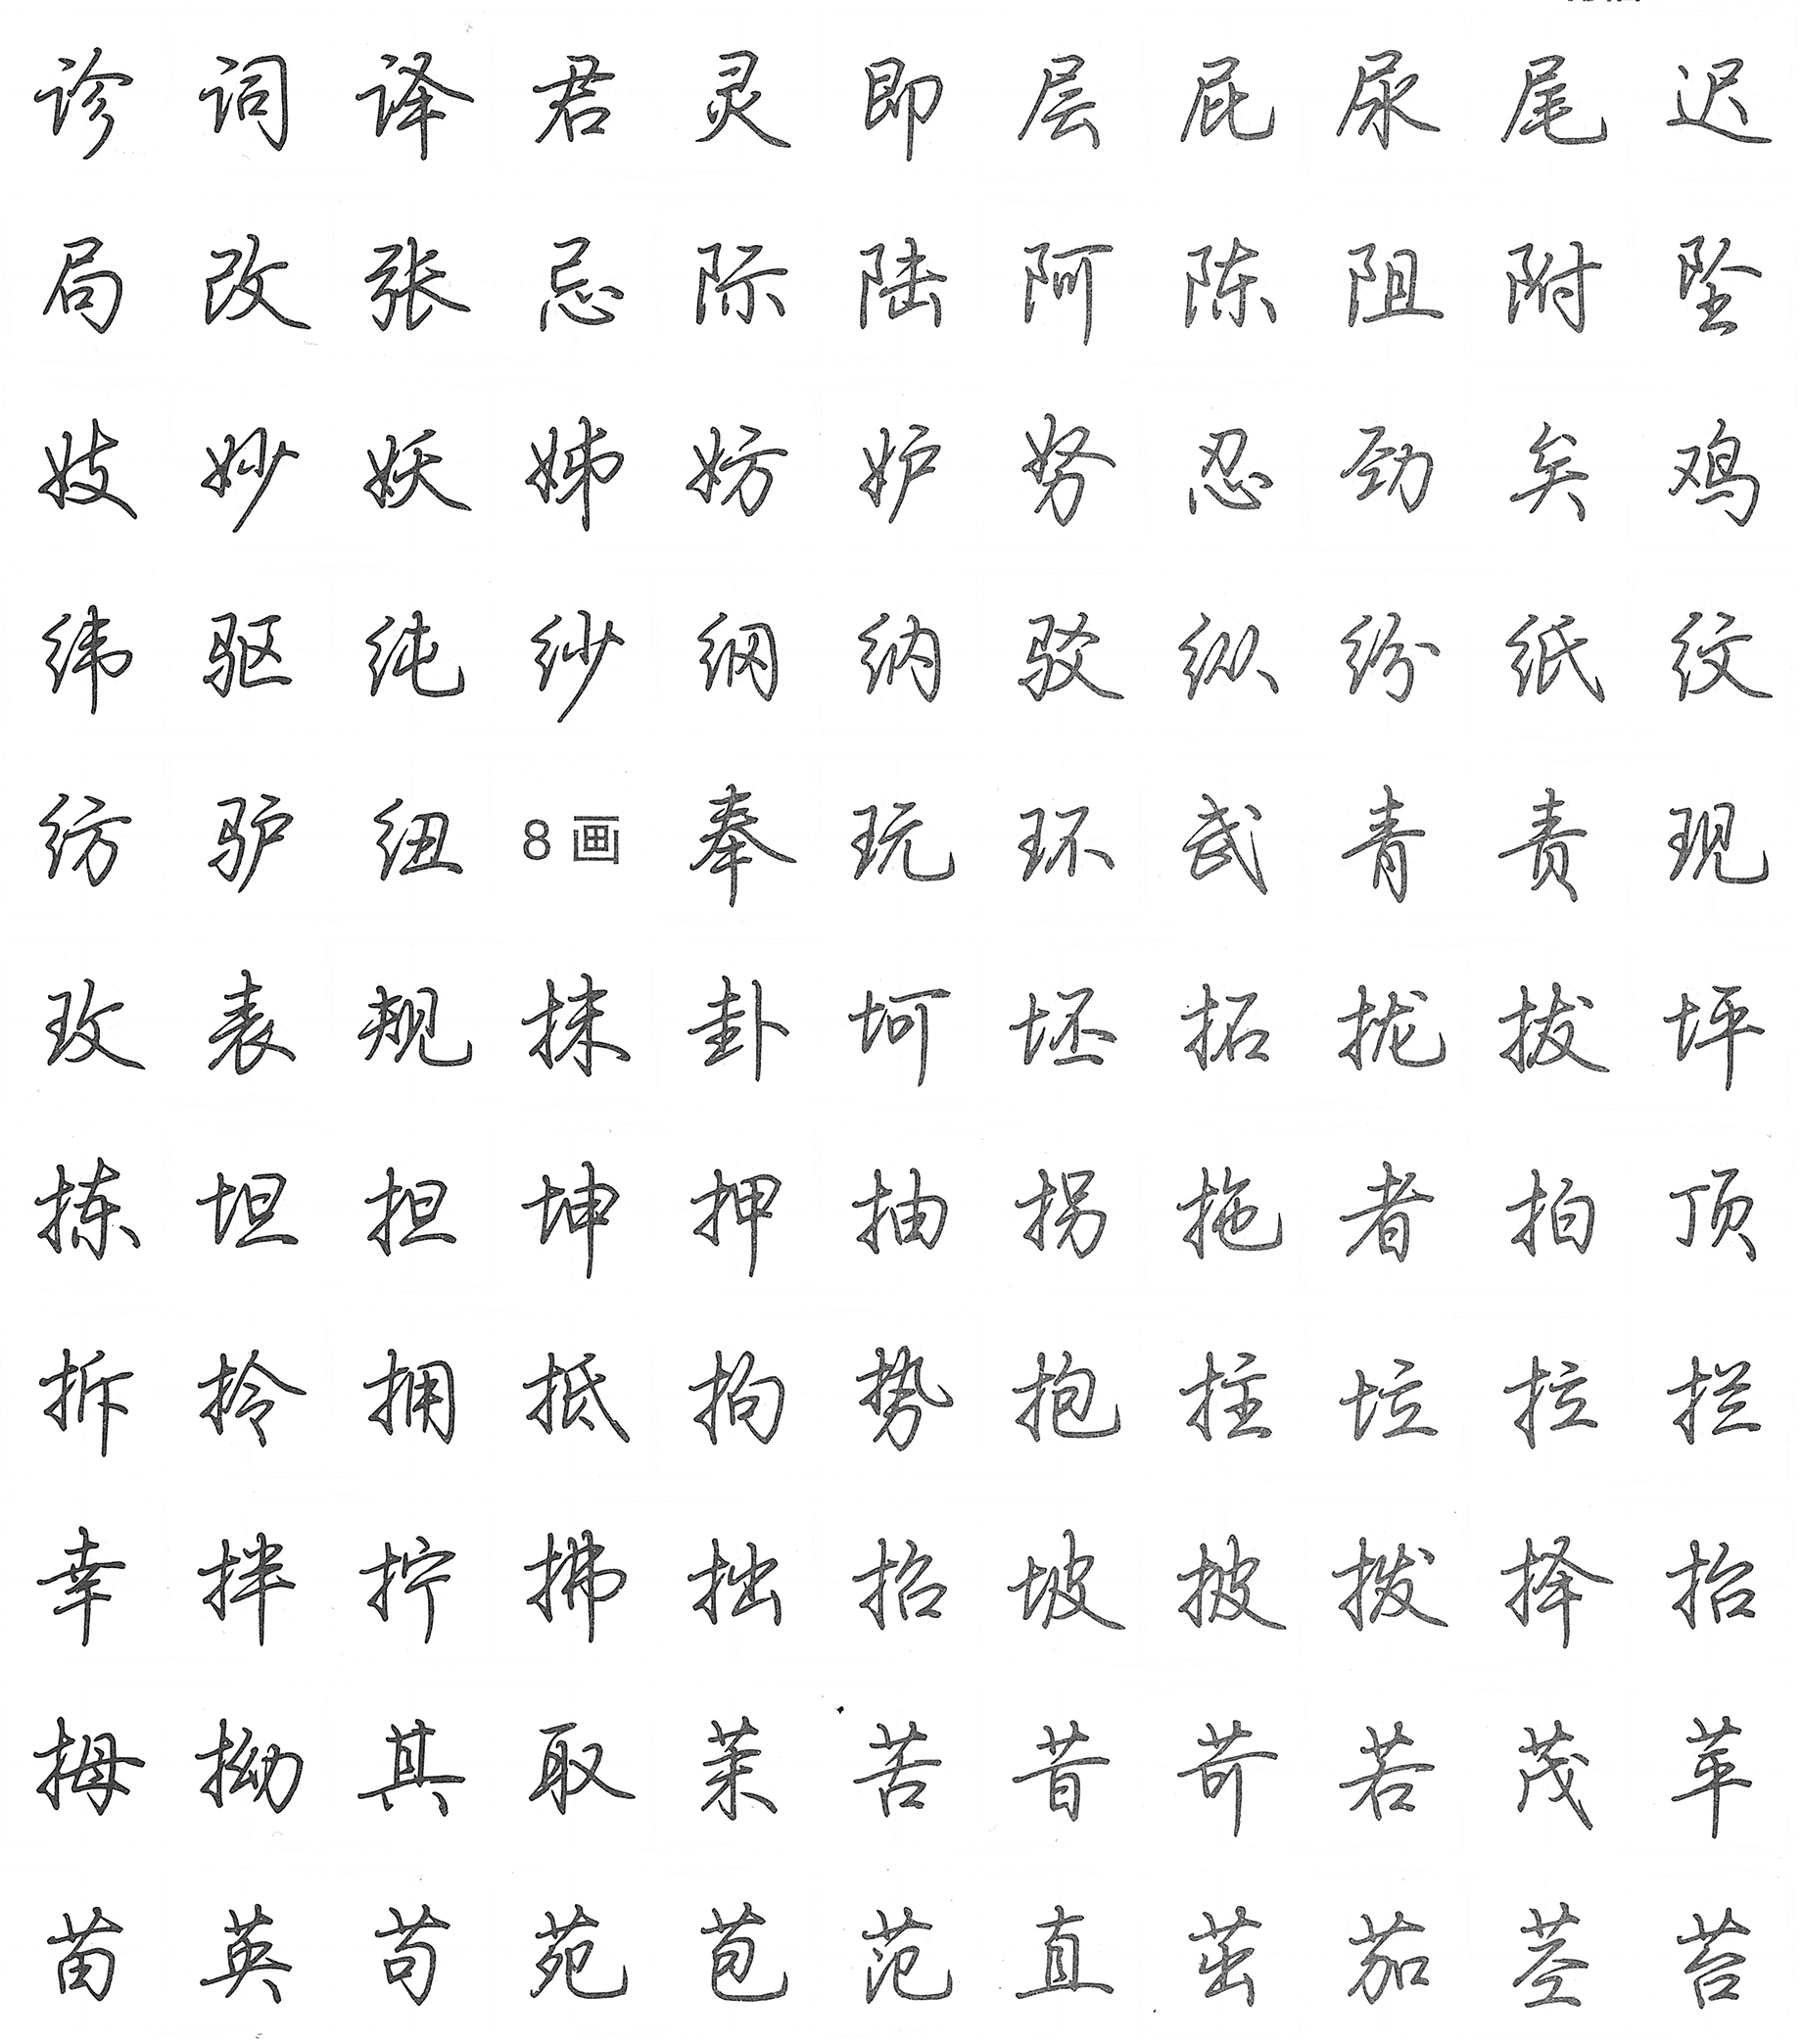 诊 词 译 君 灵 即 层 屁 尿 尾 迟
局 改 张 忌 际 陆 阿 陈 阻 附 坠
妓 妙 妖 姊 妨 妒 努 忍 劲 矣 鸡
纬 驱 纯 纱 纲 纳 驳 纵 纷 纸 纹
纺 驴 纽 8 画 奉 玩 环 武 青 责 现
玫 表 规 抹 卦 坷 坯 拓 拢 拔 坪
拣 坦 担 坤 押 抽 拐 拖 者 拍 顶
拆 拎 拥 抵 拘 势 抱 拄 垃 拉 拦
幸 拌 拧 拂 拙 招 坡 披 拨 择 抬
拇 拗 其 取 茉 苦 昔 苛 若 茂 苹
苗 英 苟 苑 苞 范 直 茁 茄 茎 苔